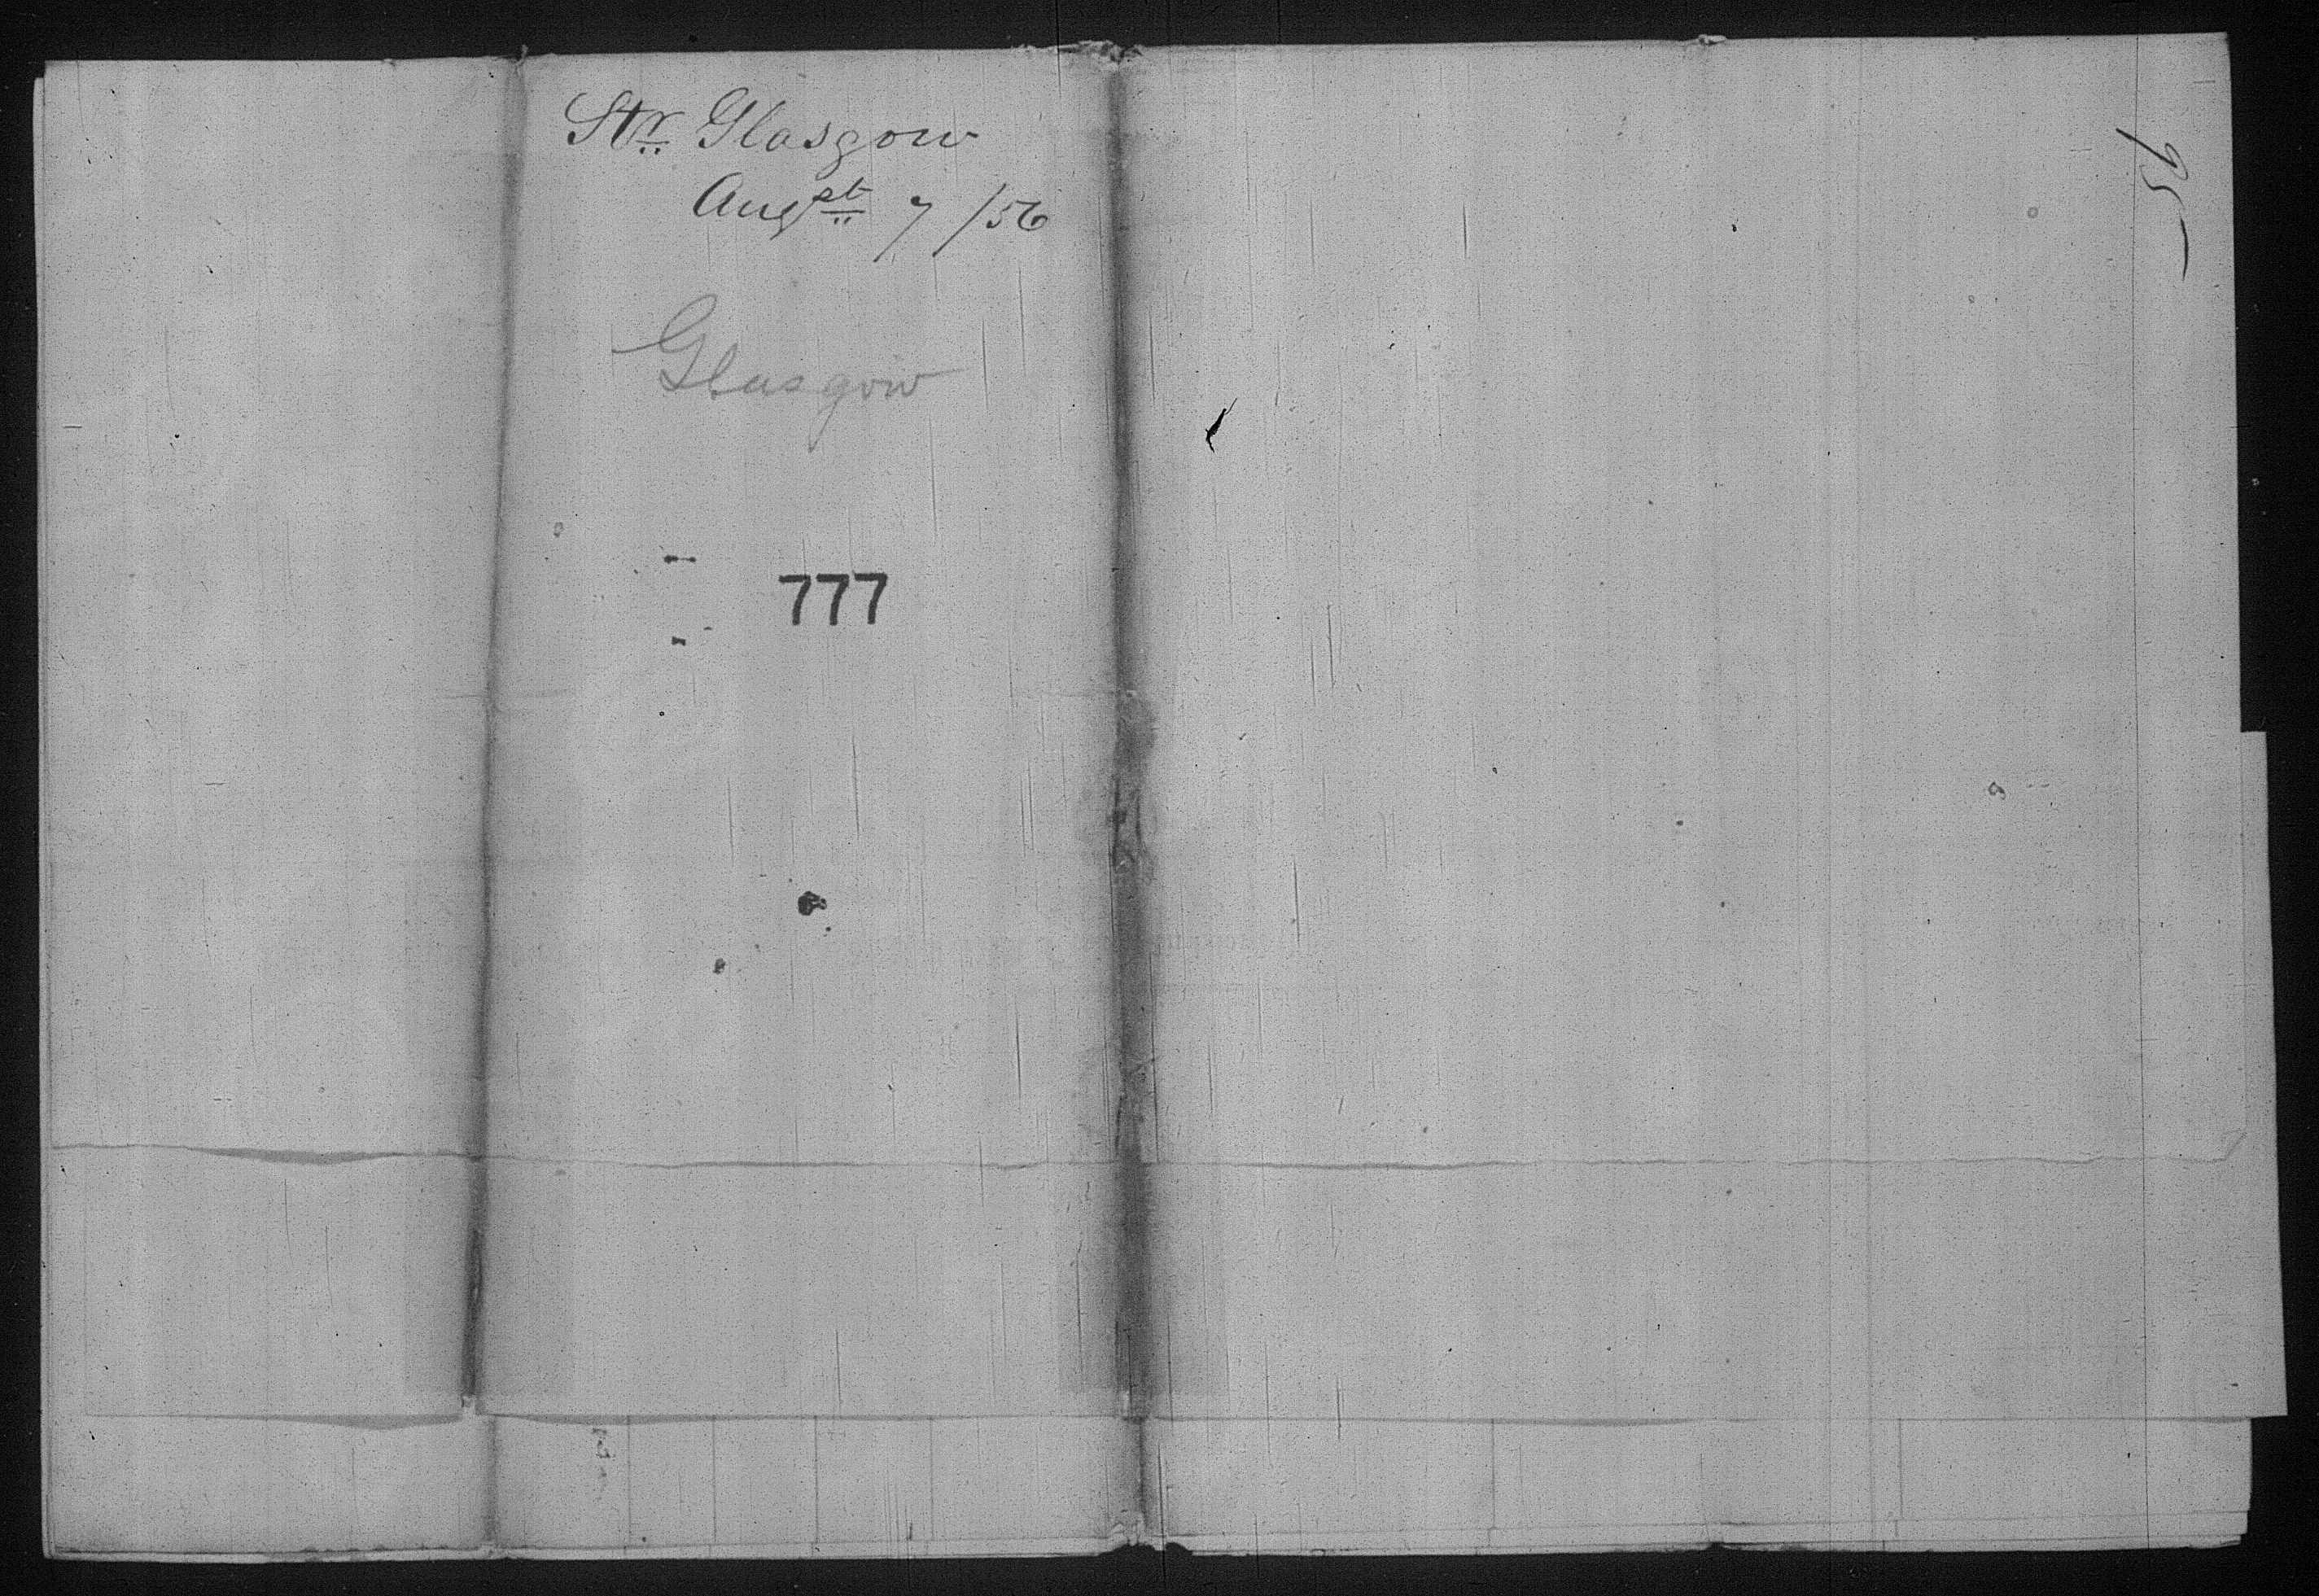 Str Glasgow
Augst 7 /56
Glasgow
777
95